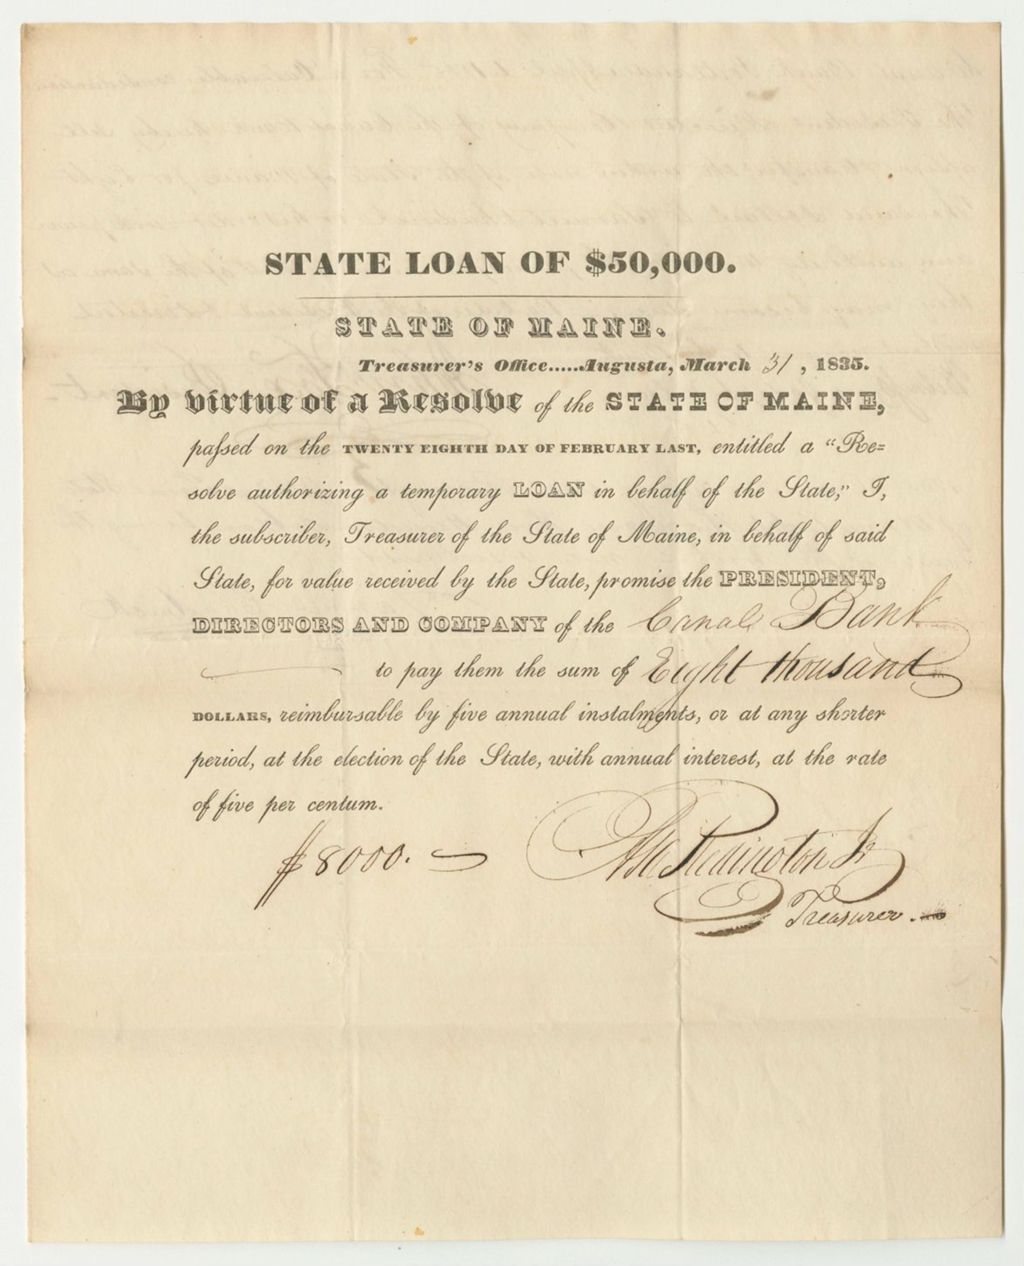 STATE LOAN OF $50,000.
STATE OF MAINE.
Treasurer's Office.....Augusta, March 31, 1835.
By virtue of a Resolve of the STATE OF MAINE,
passed on the TWENTY EIGHTH DAY OF FEBRUARY LAST, entitled a "Re=
solve authorizing a temporary LOAN in behalf of the State;" I,
the subscriber, Treasurer of the State of Maine, in behalf of said
State, for value received by the State, promise the PRESIDENT,
DIRECTORS AND COMPANY of the Canal Bank
to pay them the sum of Eight thousand
DOLLARS, reimbursable by five annual instalments, or at any shorter
period, at the election of the State, with annual interest, at the rate
of five per centum.
$8000.
Redington Jr
Treasurer.